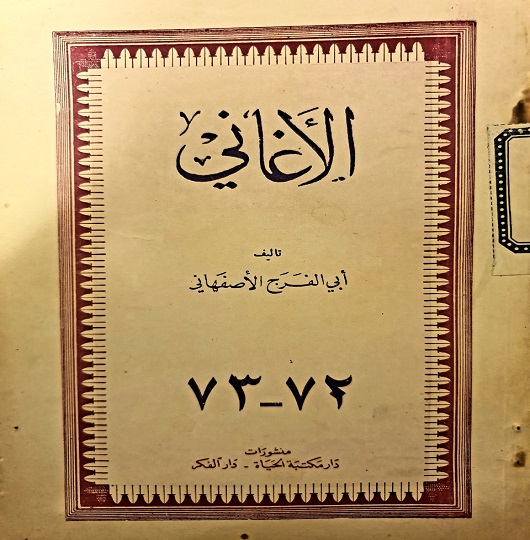 الأغاني
تاليف
أبي الفرج الأصفهاني
٧٢-٧٣
منشورات
دار مكتبة الحياة - دار الفكر